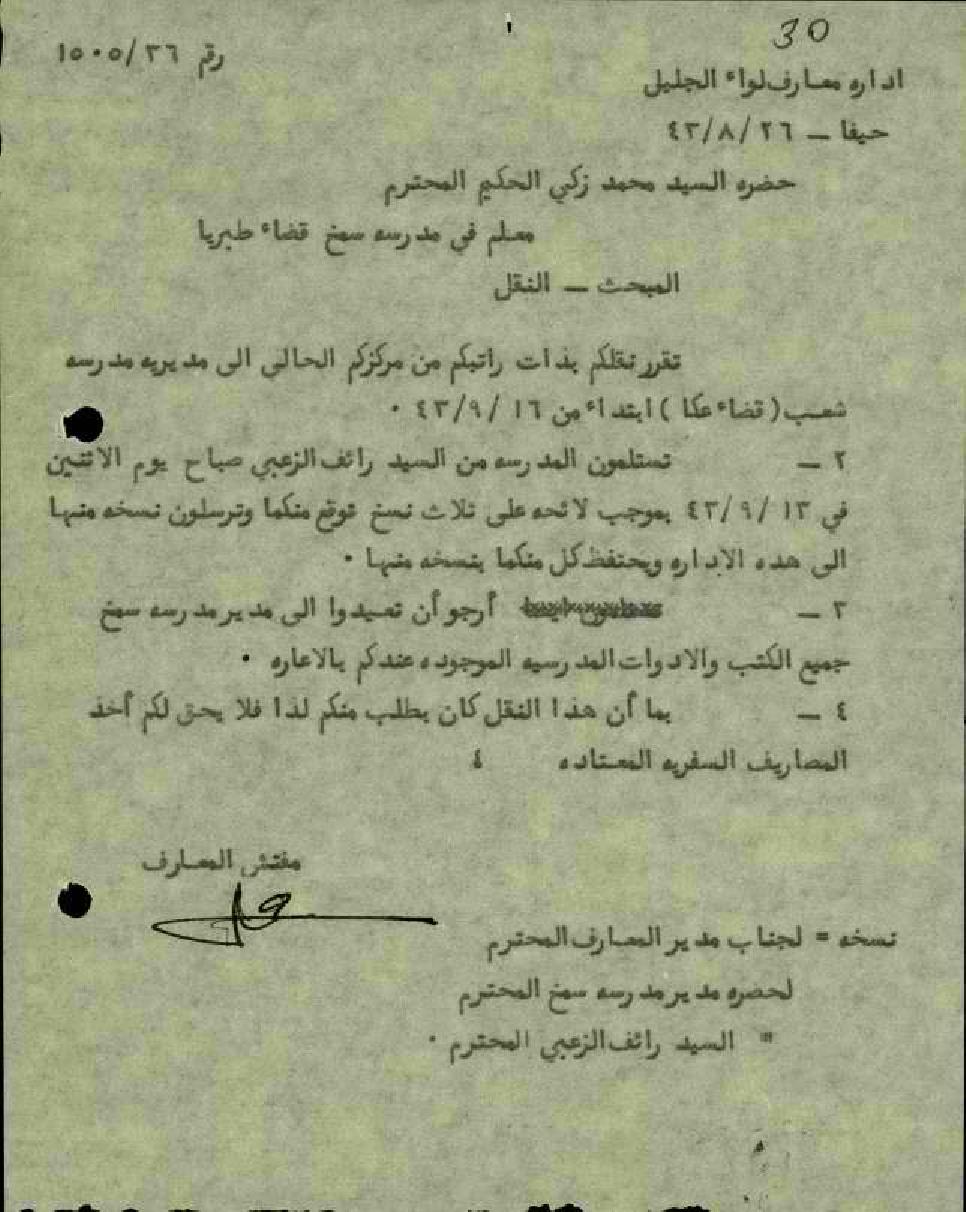 30
رقم ١٥٠٥/٢٦
اداره معارف لواء الجليل
حيفا ــ ٢٦ /٨/ ٤٣
حضره السيد محمد زكي الحكيم المحترم
معلم في مدرسه سمخ قضاء طبريا
المبحث ــ النقل
تقرر نقلكم بذات راتبكم من مركزكم الحالي الى مديريه مدرسه
شعب ( قضاء عكا ) ابتداء من ١٦ /٩/ ٤٣ ٠
٢ ــ تستلمون المدرسه من السيد رائف الزعبي صباح يوم الاثنين
في ١٣ /٩/ ٤٣ بموجب لائحه على ثلاث نسخ توقع منكما وترسلون نسخه منها
الى هذه الاداره ويحتفظ كل منكما بنسخه منها ٠
٣ ــ أرجو أن تعيدوا الى مدير مدرسه سمخ
جميع الكتب والادوات المدرسيه الموجوده عندكم بالاعاره ٠
٤ ــ بما أن هذا النقل كان بطلب منكم لذا فلا يحق لكم أخذ
المصاريف السفريه المعتاده ٤
مفتش المعارف
نسخه = لجناب مدير المعارف المحترم
لحضره مدير مدرسه سمخ المحترم
= السيد رائف الزعبي المحترم ٠